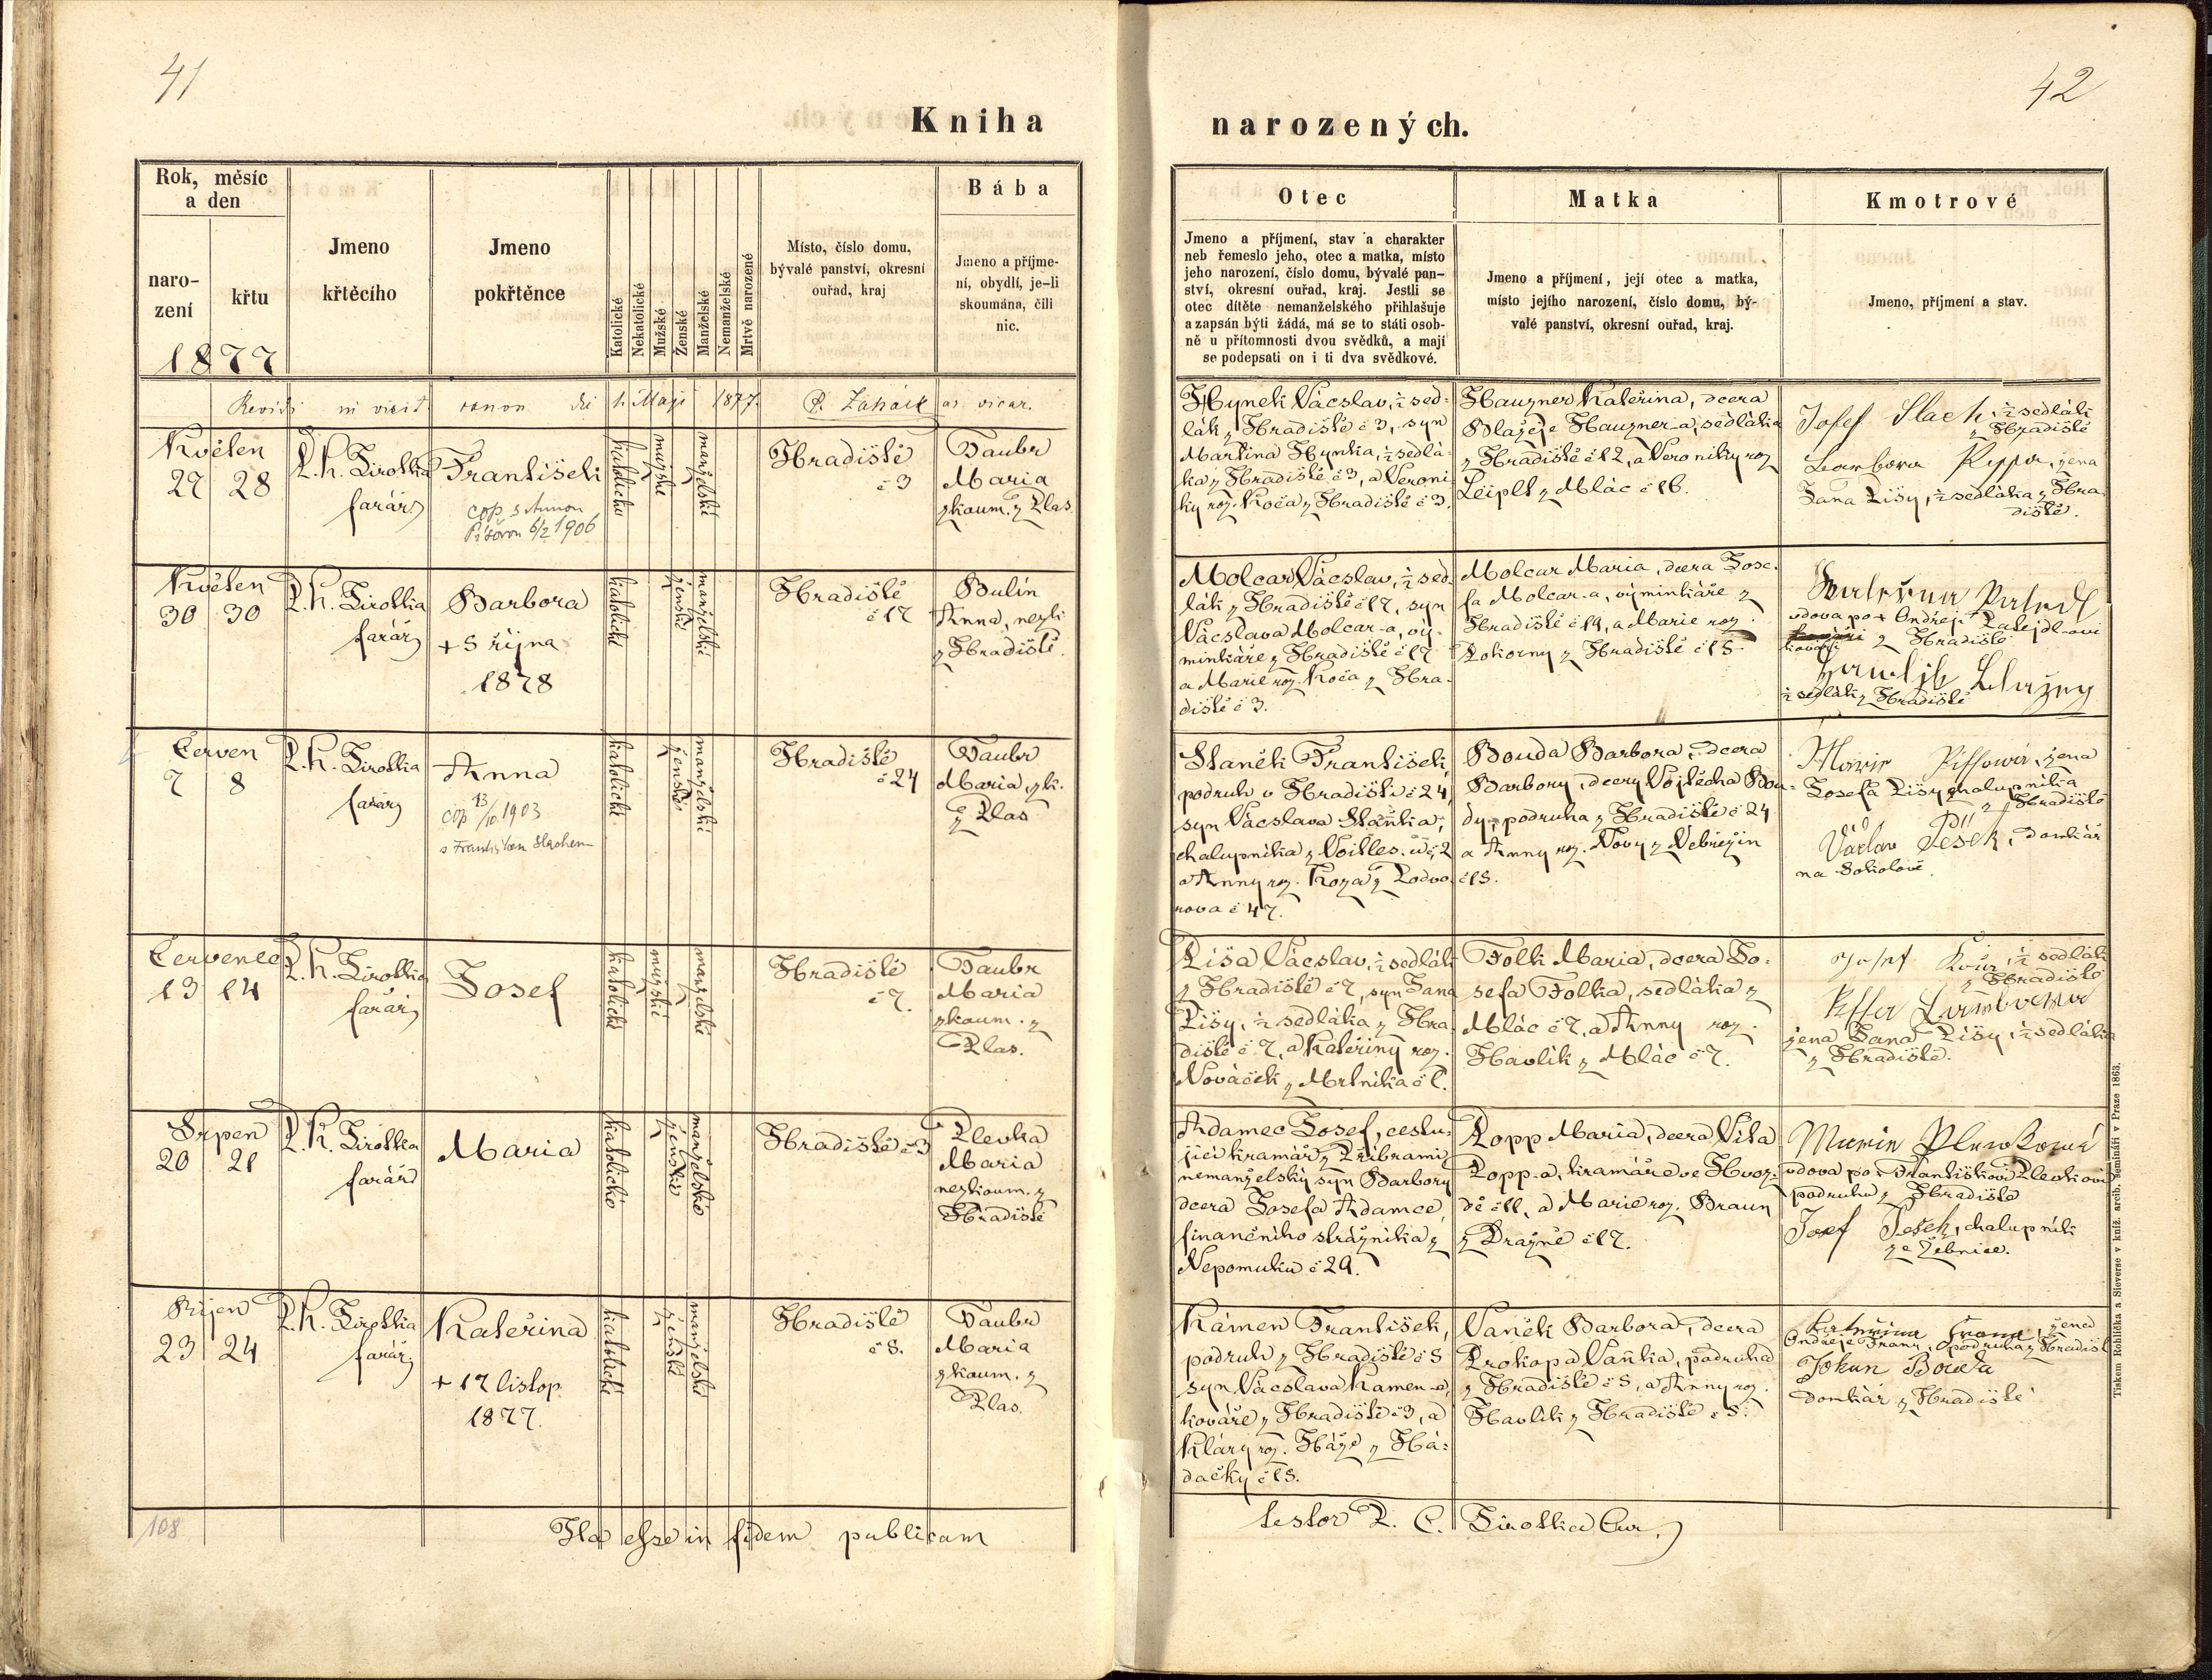 41
Kniha
Rok, měsíc
a den
naro-
zení
křtu
1877
Jmeno
křtěcího
Jmeno
pokřtěnce
Katolické
Nekatolické
Mužské
Ženské
Manželské
Nemanželské
Mrtvě narozené
Místo, číslo domu,
bývalé panství, okresní
ouřad, kraj
Bába
Jmeno a příjme-
ní, obydlí, je-li
skoumána, čili
nic.
1. Maji 1877.
Květen
27 28
P. K. Sirotka
farář
František
cop. s Annou
6/2 1906
katolické
mužské
manželské
Hradiště
č 3
Taubr
Maria
zkoum. z Plas
Květen
30 30
P. K. Sirotka
farář
Barbora
+ 5 října
1878
katolické
ženské
manželské
Hradiště
č 17
Bulín
Anna, nezk
z Hradiště.
Červen
7 8
P. K. Sirotka
farář
Anna
cop 13/10. 1903
s Františkem Slachem
katolické
ženské
manželské
Hradiště
č 24
Taubr
Maria, zk.
z Plas
Červenec
13 14
P. K. Sirotka
farář
Josef
katolické
mužské
manželské
Hradiště
č 7.
Taubr
Maria
zkoum. z
Plas.
Srpen
20 21
P. K. Sirotka
farář
Maria
katolické
ženské
manželské
Hradiště č 3
Plevka
Maria
nezkoum. z
Hradiště
Říjen
23 24
P. K. Sirotka
farář
Kateřina
+ 17 listop.
1877.
katolické
ženské
manželské
Hradiště
č 5.
Taubr
Maria
zkoum. z
Plas.
108
Ita esse in fidem publicam
42
narozených.
Otec
Jmeno a příjmení, stav a charakter
neb řemeslo jeho, otec a matka, místo
jeho narození, číslo domu, bývalé pan-
ství, okresní ouřad, kraj. Jestli se
otec dítěte nemanželského přihlašuje
a zapsán býti žádá, má se to státi osob-
ně u přítomnosti dvou svědků, a mají
se podepsati on i ti dva svědkové.
Matka
Jmeno a příjmení, její otec a matka,
místo jejího narození, číslo domu, bý-
valé panství, okresní ouřad, kraj.
Kmotrové
Jmeno, příjmení a stav.
Hynek Václav, ½ sed-
lák z Hradiště č 3, syn
Martina Hynka, ½ sedlá-
ka z Hradiště č 3, a Veroni-
ky roz. Koča z Hradiště č 3.
Hauzner Kateřina, dcera
Blažeje Hauzner-a, sedláka
z Hradiště č 12, a Veroniky roz
Leiplt z Mlác č 16.
Josef Slach, ½ sedlák
z Hradiště
Barbora Pišša, žena
Jana Pišy, ½ sedláka z Hra-
diště.
Molcar Václav, ½ sed-
lák z Hradiště č 17, syn
Václava Molcar-a, vý-
minkáře z Hradiště č 17
a Marie roz. Koča z Hra-
diště č 3.
Molcar Maria, dcera Jose-
fa Molcar-a, výminkáře z
Hradiště č 19, a Marie roz.
Pokorny z Hradiště č 15.
vdova po + Ondřeji Patejdl-ovi
kováři z Hradiště
½ sedlák z Hradiště
Staněk František,
podruh v Hradišti č 24,
syn Václava Staňka,
chalupníka z Voitles. új. 2
a Anny roz. Koza z Podvo-
rova č 47.
Bouda Barbora, dcera
Barbory, dcery Vojtěcha Bou-
dy, podruha z Hradiště č 24
a Anny roz. Novy z Nebřežin
č 15.
Marie Piššová, žena
Josefa Pišy chalupníka
z Hradiště
Václav Pešek, domkář
na Sokolově.
Piša Václav, ½ sedlák
z Hradiště č 7, syn Jana
Pišy, ½ sedláka z Hra-
diště č 7, a Kateřiny roz.
Nováček z Mrtníka č 1.
Folk Maria, dcera Jo-
sefa Folka, sedláka z
Mlác č 7, a Anny roz.
Havlík z Mlác č 7.
Josef ½ sedlák
z Hradiště
žena Jana Pišy, ½ sedláka
z Hradiště.
Adamec Josef, cestu-
jící kramář z Příbrami,
nemanželský syn Barbory
dcera Josefa Adamce,
finančního strážníka z
Nepomuku č 29.
Popp Maria, dcera Víta
Popp-a, kramáře ve Hvoz-
dě č 11, a Marie roz. Braun
z Dražně č 17.
Marie Plevková
vdova po + Františkovi Plevkovi
podruhu z Hradiště
Josef Pešek, chalupník
ze Žebnice.
Kámen František,
podruh z Hradiště č 5
syn Václava Kamen-a,
kováře z Hradiště č 3, a
Kláry roz. Háže z Há-
dačky č 15.
Vaněk Barbora, dcera
Prokopa Vaňka, podruha
z Hradiště č 5, a Anny roz.
Havlík z Hradiště č 5.
Kateřina Franc, žena
Ondřeje Franz, podruha z Hradišt
Johan Bouda
domkář z Hradiště
testor P. C. Sirotka Cur.
Tiskem Rohlíčka a Sieverse v kníž. arcib. semináři v Praze 1863.